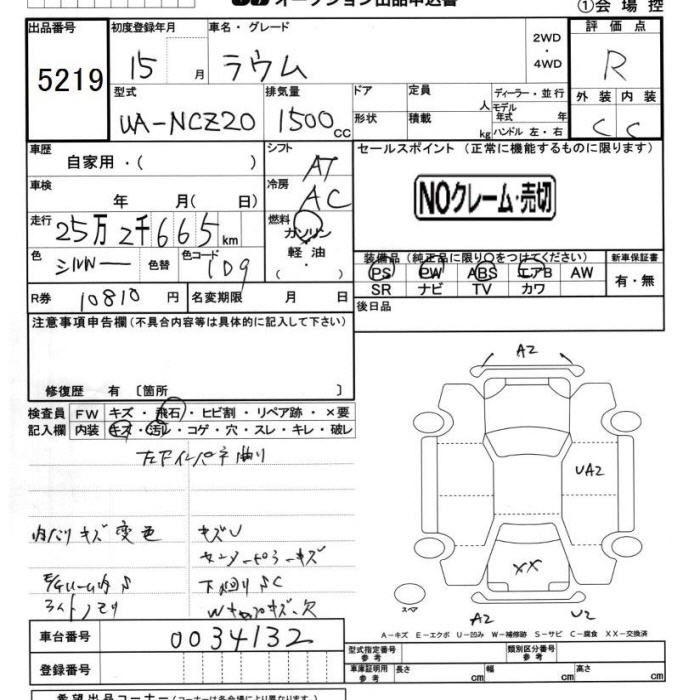 オークション出品申込書
①会場控
出品番号 初度登録年月 車名・グレード 評価点
5219 15 月 ラウム 2WD・4WD R
型式 排気量 ドア 定員 人 ディーラー・並行 外装 内装
UA-NCZ20 1500 CC 形状 積載 kg モデル年式 年 C C
ハンドル 左・右
車歴 シフト セールスポイント (正常に機能するものに限ります)
自家用・( ) AT
車検 冷房 NOクレーム・売切
年 月( 日) AC
走行 25万2千665km 燃料 ガソリン
軽油
( )
色 シルバー 色替 色コード 1D9
装備品(純正品に限り○をつけてください) 新車保証書
PS PW ABS エアB AW 有・無
SR ナビ TV カワ
R券 10810 円 名変期限 月 日
後日品
注意事項申告欄(不具合内容等は具体的に記入して下さい)
修復歴 有 〔箇所 〕
検査員 FW キズ・飛石・ヒビ割・リペア跡・×要
記入欄 内装 キズ・汚レ・コゲ・穴・スレ・キレ・破レ
A2
曲り
UA2
内だりキズ変色 キズU
XX
スペア
A2 U2
A−キズ E−エクボ U−凹み W−補修跡 S−サビ C−腐食 XX−交換済
車台番号 0034132
登録番号
型式指定番号 参考 類別区分番号 参考
車庫証明用 参考 長さ cm 幅 cm 高さ cm
希望出品コーナー(コーナーは各会場により異なります。)